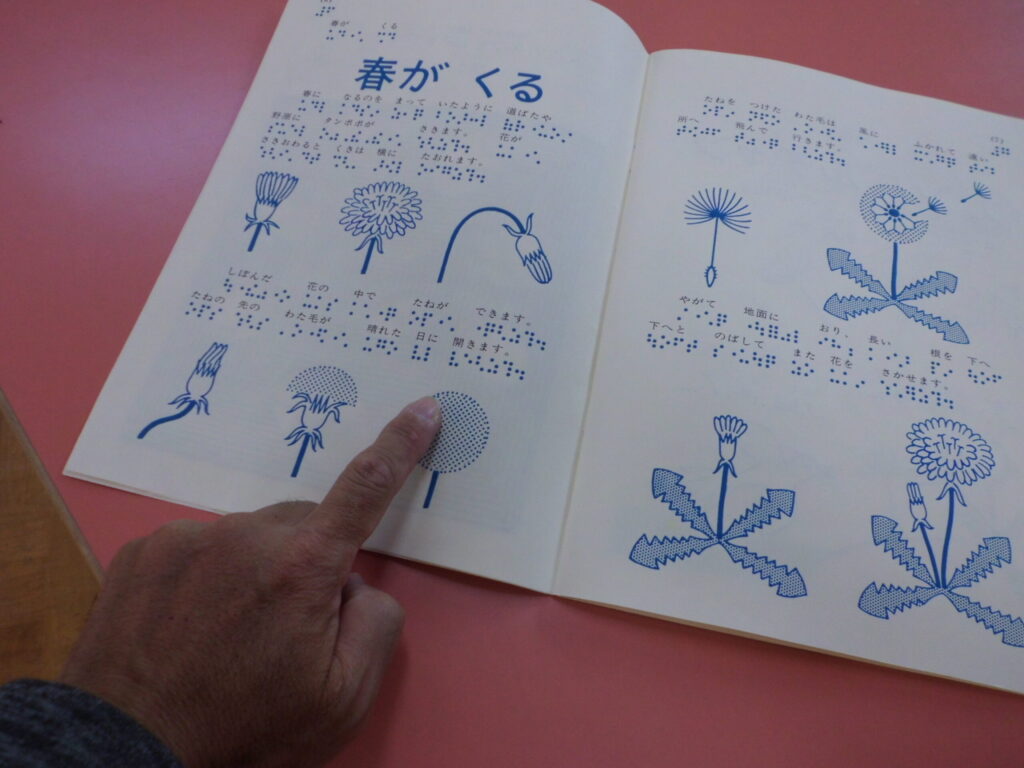 春が くる
春が くる
春に なるのを まって いたように 道ばたや
野原に タンポポが ささきます。 花が
ささおわると くきは 横に たおれます。
しぼんだ 花の 中で たねが できます。
たねの 先の わた毛が 晴れた 日に 開きます。
(7)
たねを つけた わた毛は 風に ふかれて 遠い
所へ 飛んで 行きます。
やがて 地面に おり、長い 根を 下へ
下へと のばして また 花を さかせます。